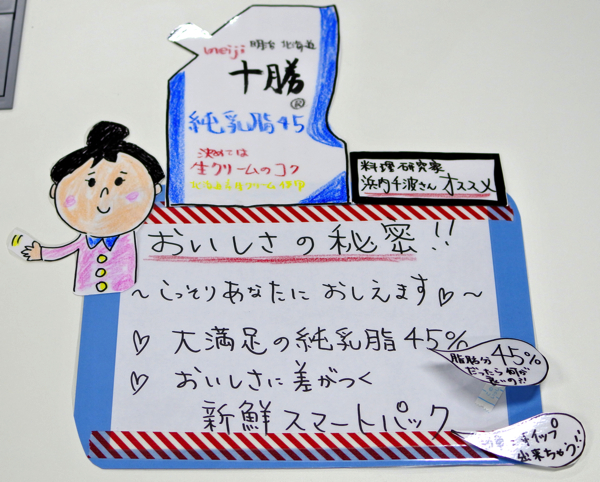 meiji 明治 北海道
十勝
®
純乳脂45
決めては
生クリームのコク
料理研究家
浜内千波さん オススメ
おいしさの秘密!!
～こっそりあなたに おしえます♡～
♡ 大満足の純乳脂45%
脂肪分45%
だったら何が
♡ おいしさに差がつく
新鮮スマートパック
ホイップ
出来ちゃう!!